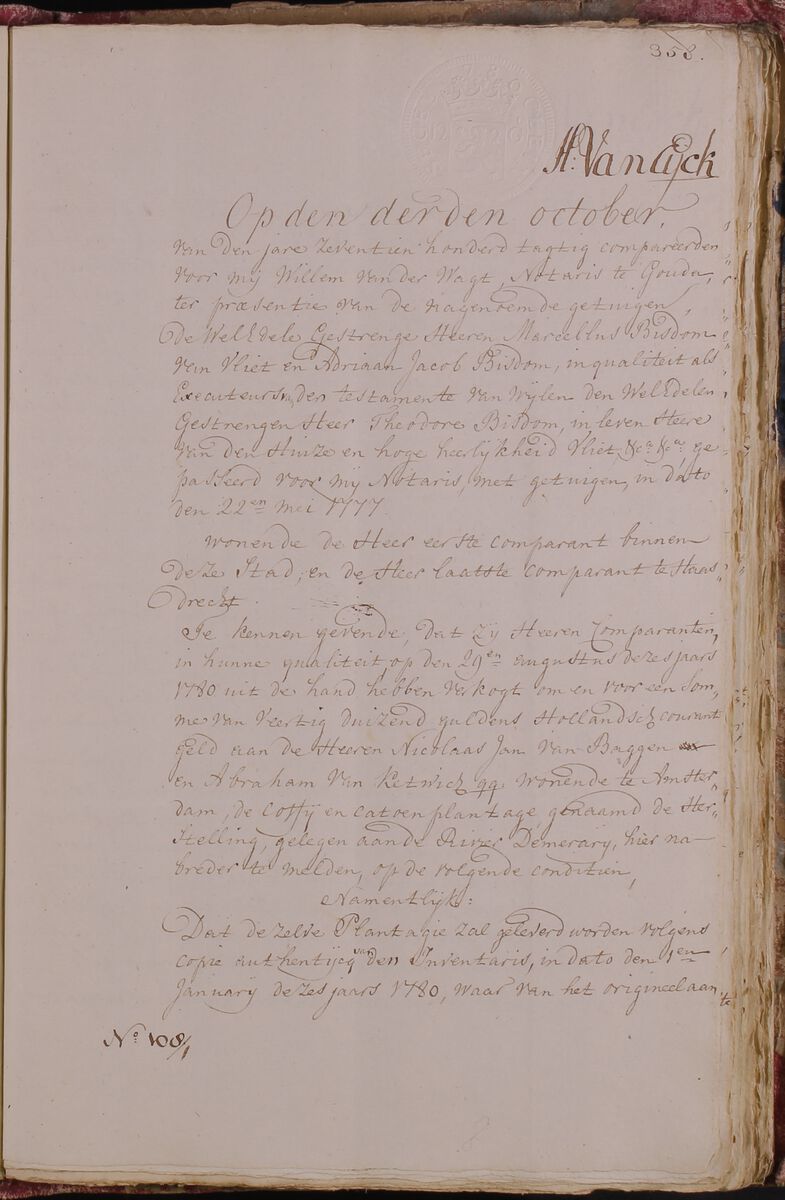 358.
H: Van Eyck
Op den derden october,
van den jare zeventien honderd tagtig compareerden
voor mij Willem van der Wagt, Notaris te Gouda,
ter præsentie van de nagenoemde getuigen,
De WelEdele Gestrenge Heeren Marcellus Bisdom
van Vliet en Adriaan Jacob Bisdom, in qualiteit als
Executeurs van den testamente van wijlen den WelEdelen
Gestrengen Heer Theodore Bisdom, in leven Heere
van den Huize en hoge heerlijkheid Vliet, &ca &ca, ge-
passeerd voor mij Notaris, met getuigen, in dato
den 22en mei 1777.
wonende de Heer eerste comparant binnen
deze Stad, en de Heer laatste comparant te Haas-
drecht.
Te kennen gevende, dat zij Heeren Comparanten,
in hunne qualiteit, op den 29en augustus dezes jaars
1780 uit de hand hebben verkogt om en voor een Som-
me van Veertig duizend guldens Hollandsch courant
geld aan de Heeren Nicolaas Jan van Baggen
en Abraham van Ketwich qq. wonende te Amster-
dam, de coffy en catoen plantage genaamd de Her-
stelling, gelegen aan de River Demerary, hier na
breder te melden, op de volgende conditien,
Namentlijk:
Dat dezelve Plantagie zal geleverd worden volgens
copie authentijcq van den Inventaris, in dato den 1en
January dezes jaars 1780, waar van het origineel aan
No. 108/1